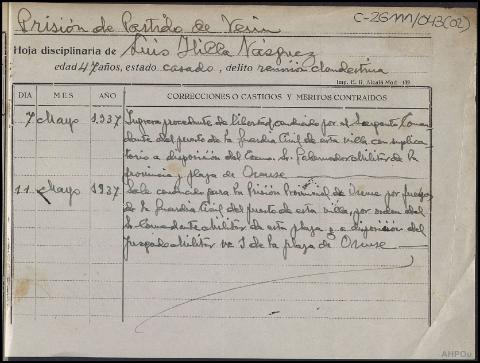 C-26111/043(02)
Prisión de Partido de Verin
Hoja disciplinaria de Luis Villa Vázquez
edad 47 años, estado casado, delito reunión clandestina
Imp. E. R. Alcalá Mod. 109
DIA MES AÑO CORRECCIONES O CASTIGOS Y MERITOS CONTRAIDOS
7 Mayo 1.937 Ingresa procedente de libertad, conducido por el Sargento Coman
dante del puesto de la Guardia Civil de esta villa con suplica
torio a disposición del Excmo. Sr. Gobernador Militar de la
provincia y plaza de Orense
11 Mayo 1937 Sale conducido para la Prisión Provincial de Orense por fuerzas
de la Guardia Civil del puesto de esta villa, por orden del
Sr. Comandante Militar de esta plaza y a disposición del
Juzgado Militar nº 1 de la plaza de Orense
AHPOu